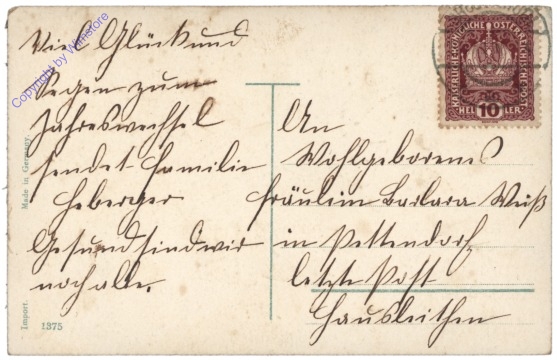 Viel Glück und
Segen zum
Jahreswechsel
sendet Familie
Heberger
Gesund sind wir
noch alle.
An
Wohlgeborens
Fräulein Barbara Weiß
in Pettendorf
letzte Post
Hausleithen
KAISERLICHE KÖNIGLICHE ÖSTERREICHISCHE POST
HELLER
10
Made in Germany.
Import.
1375
Copyright by Wimstore